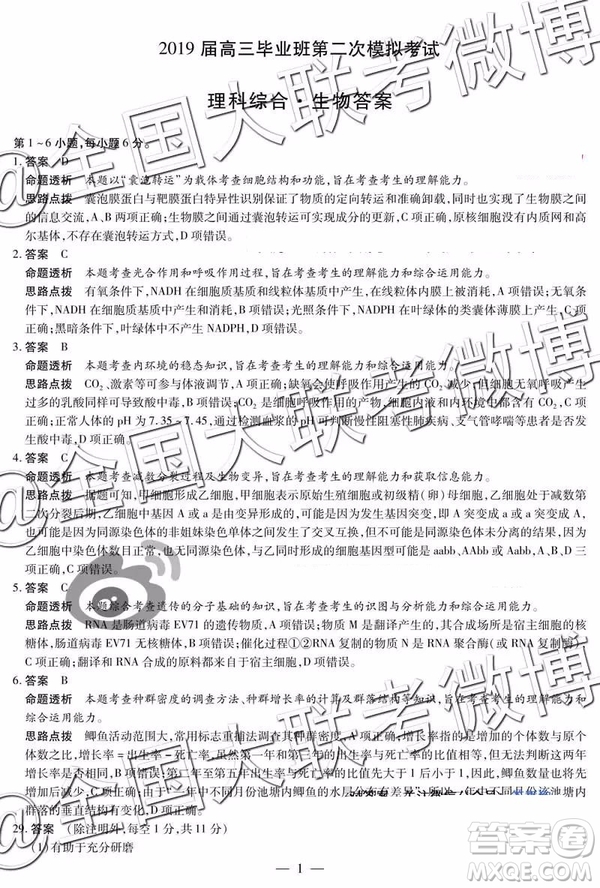 2019 届高三毕业班第二次模拟考试
理科综合·生物答案
第1~6小题,每小题6分。
1. 答案 D
命题透析 本题以“囊泡转运”为载体考查细胞结构和功能,旨在考查考生的理解能力。
思路点拨 囊泡膜蛋白与靶膜蛋白特异性识别保证了物质的定向转运和准确卸货,也实现了生物膜之间
的信息交流,A、B两项正确;生物膜可以通过囊泡转运实现成分的更新,C项正确;原核细胞没有内质网和高
尔基体,不存在囊泡转运方式,D项错误。
2. 答案 C
命题透析 本题考查光合作用和呼吸作用过程,旨在考查考生的理解能力和综合运用能力。
思路点拨 有氧条件下,NADH在细胞质基质和线粒体内产生,在线粒体内膜上被消耗,A项错误;无氧条
件下,NADH在细胞质基质中产生和消耗,B项错误;光照条件下,NADPH在叶绿体的类囊体薄膜上产生,C
项正确;黑暗条件下,叶绿体中不产生NADPH,D项错误。
3. 答案 B
命题透析 本题考查内环境的稳态知识,旨在考查考生的理解能力和综合运用能力。
思路点拨 CO₂、激素等可参与体液调节,A项正确;缺氧会使呼吸作用产生的CO₂减少,但无氧呼吸产生
过多的乳酸同样可导致酸中毒,B项错误;
项正确;正常人体的pH为7.35~7.45,通过检测血浆的pH可判断慢性阻塞性肺疾病、支气管哮喘等患者是否发
生酸中毒,D项正确。
4. 答案 C
命题透析 本题考查减数分裂过程及生物变异,旨在考查考生的理解能力和获取信息能力。
思路点拨 据题可知,甲细胞形成乙细胞,甲细胞表示原始生殖细胞或初级精(卵)母细胞,乙细胞处于减数第
二次分裂后期,A项错误;乙细胞中基因A或a是由变异形成的,可能是基因突变,即A突变成a或a突变
成A,也可能是因为同源染色体的非姐妹染色单体之间发生了交叉互换,但不是染色体变异,B项错误;
乙细胞中染色体数目正常,也无同源染色体,C项正确;甲细胞的基因组成是aaBb、AaBb或AABb,D
项错误。
5. 答案 C
命题透析 本题综合考查遗传的分子基础的知识,旨在考查考生的识图与分析能力和综合运用能力。
思路点拨 RNA是肠道病毒EV71的遗传物质,A项错误;物质M是翻译的模板,其合成场所是宿主细胞的核
糖体,肠道病毒EV71无核糖体,B项错误;催化过程①②RNA复制的物质N是RNA聚合酶(或RNA复制酶),C项
正确;翻译和RNA合成的原料都来自于宿主细胞,D项错误。
6. 答案 B
命题透析 本题考查种群密度的调查方法、种群增长率的计算及群落结构等知识,旨在考查考生的理解能力。
思路点拨 鲫鱼活动范围大,常用标志重捕法调查其种群密度,A项正确;增长率是指增加的个体数与原
个体数之比,增长率=出生率-死亡率,虽然第一年和第二年的出生率与死亡率的比值相等,但无法判断这两年
的增长率是否相等,B项错误;由于从第4年开始出生率与死亡率的比值先大于1后小于1,因此鲫鱼的种群数量
先增大后减小,C项正确;由于不同月份池塘内鲫鱼的水层分布有差异,
落的垂直结构有变化,D项正确。
29. 答案 (除注明外,每空1分,共11分)
(1)有助于充分研磨
— 1 —
@全国大联考微博
答案圈